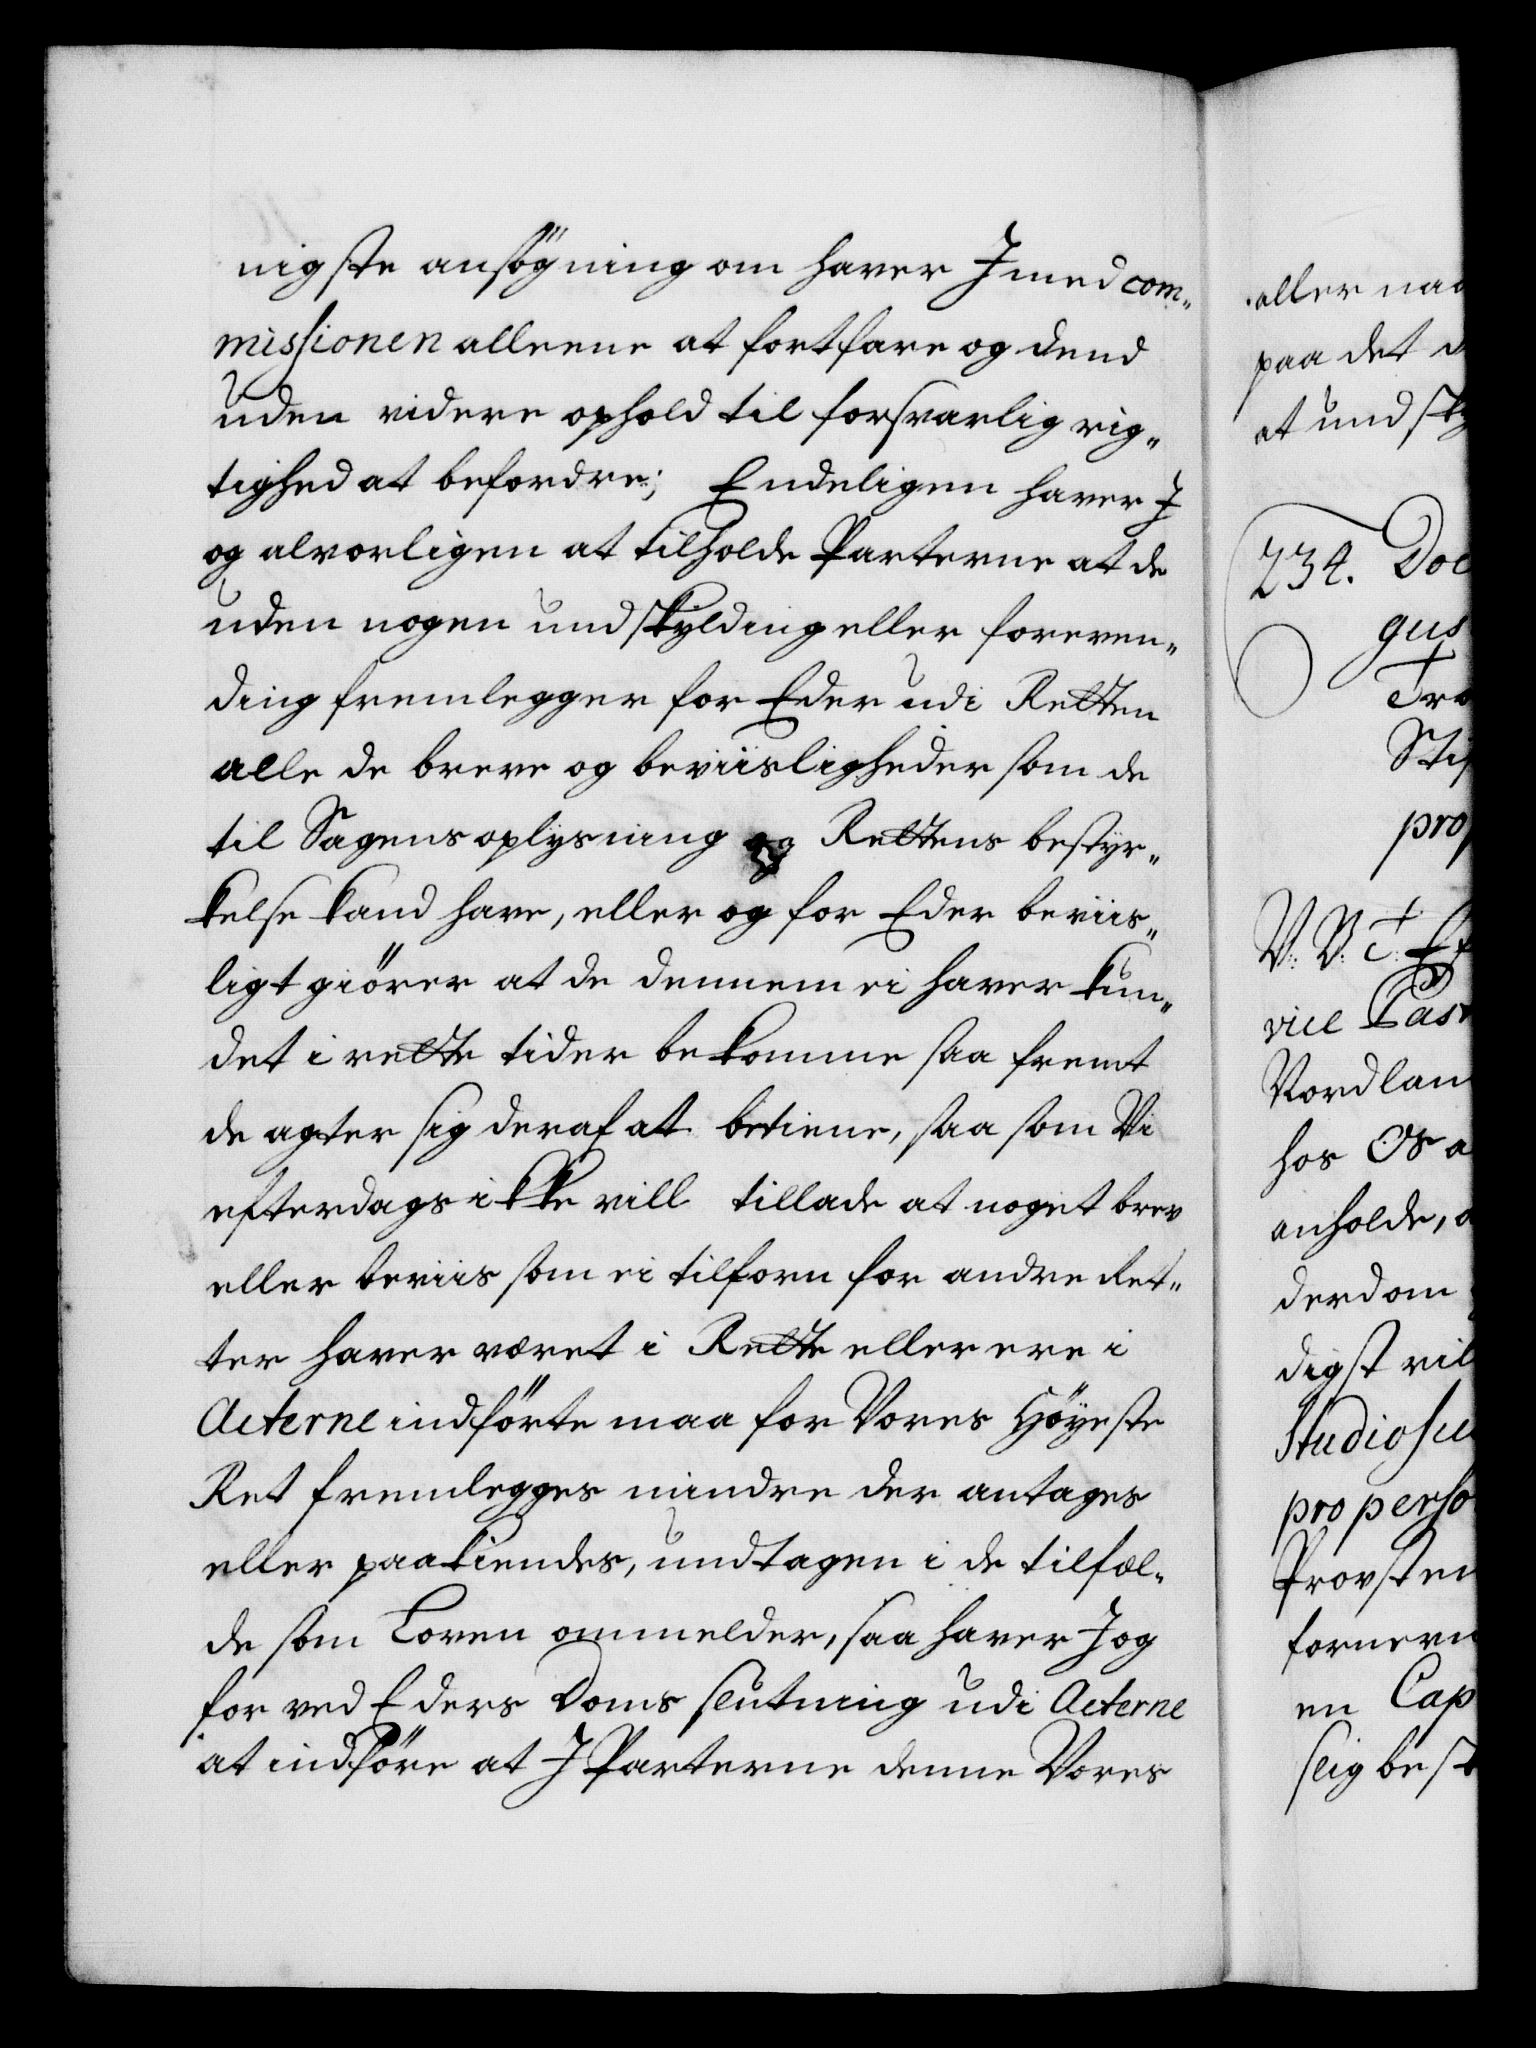 nigste ansögning om haver I med com„
missionen alleene at fortfare og dend
uden videre ophold til forsvarlig rig„
tighed at befordre; Endeligen haver I
og alvorligen at tilholde Parterne at de
uden nogen undskylding eller foreven„
ding fremlegger for Eder udi Retten
alle de breve og beviisligheder som de
til Sagens oplysning og Rettens bestyr„
kelse kand have, eller og for Eder beviis„
ligt giörer at de dennem ei haver kun„
det i rette tider bekomme saa fremt
de agter sig deraf at betiene, saa som Vi
efterdags ikke vill tillade at noget brev
eller beviis som ei tilforn for andre Ret„
ter haver været i Rette eller ere i
Acterne indförte maa for Vores Höyeste
Ret fremlegges mindre der antages
eller paakiendes, undtagen i de tilfæl„
de som Loven ommelder, saa haver I og
for ved Eders Doms slutning udi Acterne
at indföre at I Parterne denne Vores
aller naa
paa det d
at undsky
234. Doc
gus
Tro
Stif
pro
V: V: T:
vice Past
Nordlan
hos Os a
anholde, o
derdom
digst vil
Studiosu
pro perso
Provsten
fornevn
en Cap
slig best